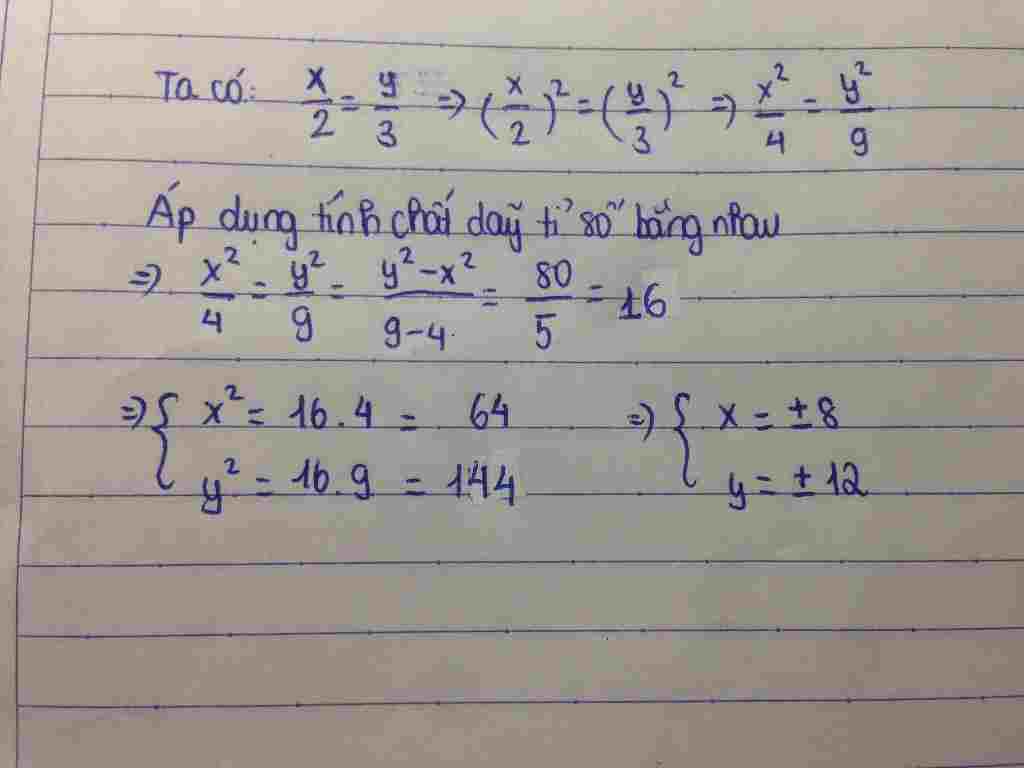 Ta có: x/2 = y/3 => (x/2)² = (y/3)² => x²/4 = y²/9
Áp dụng tính chất dãy tỉ số bằng nhau
=> x²/4 = y²/9 = (y²-x²)/(9-4) = 80/5 = 16
=> { x² = 16.4 = 64 => { x = ±8
y² = 16.9 = 144 y = ±12